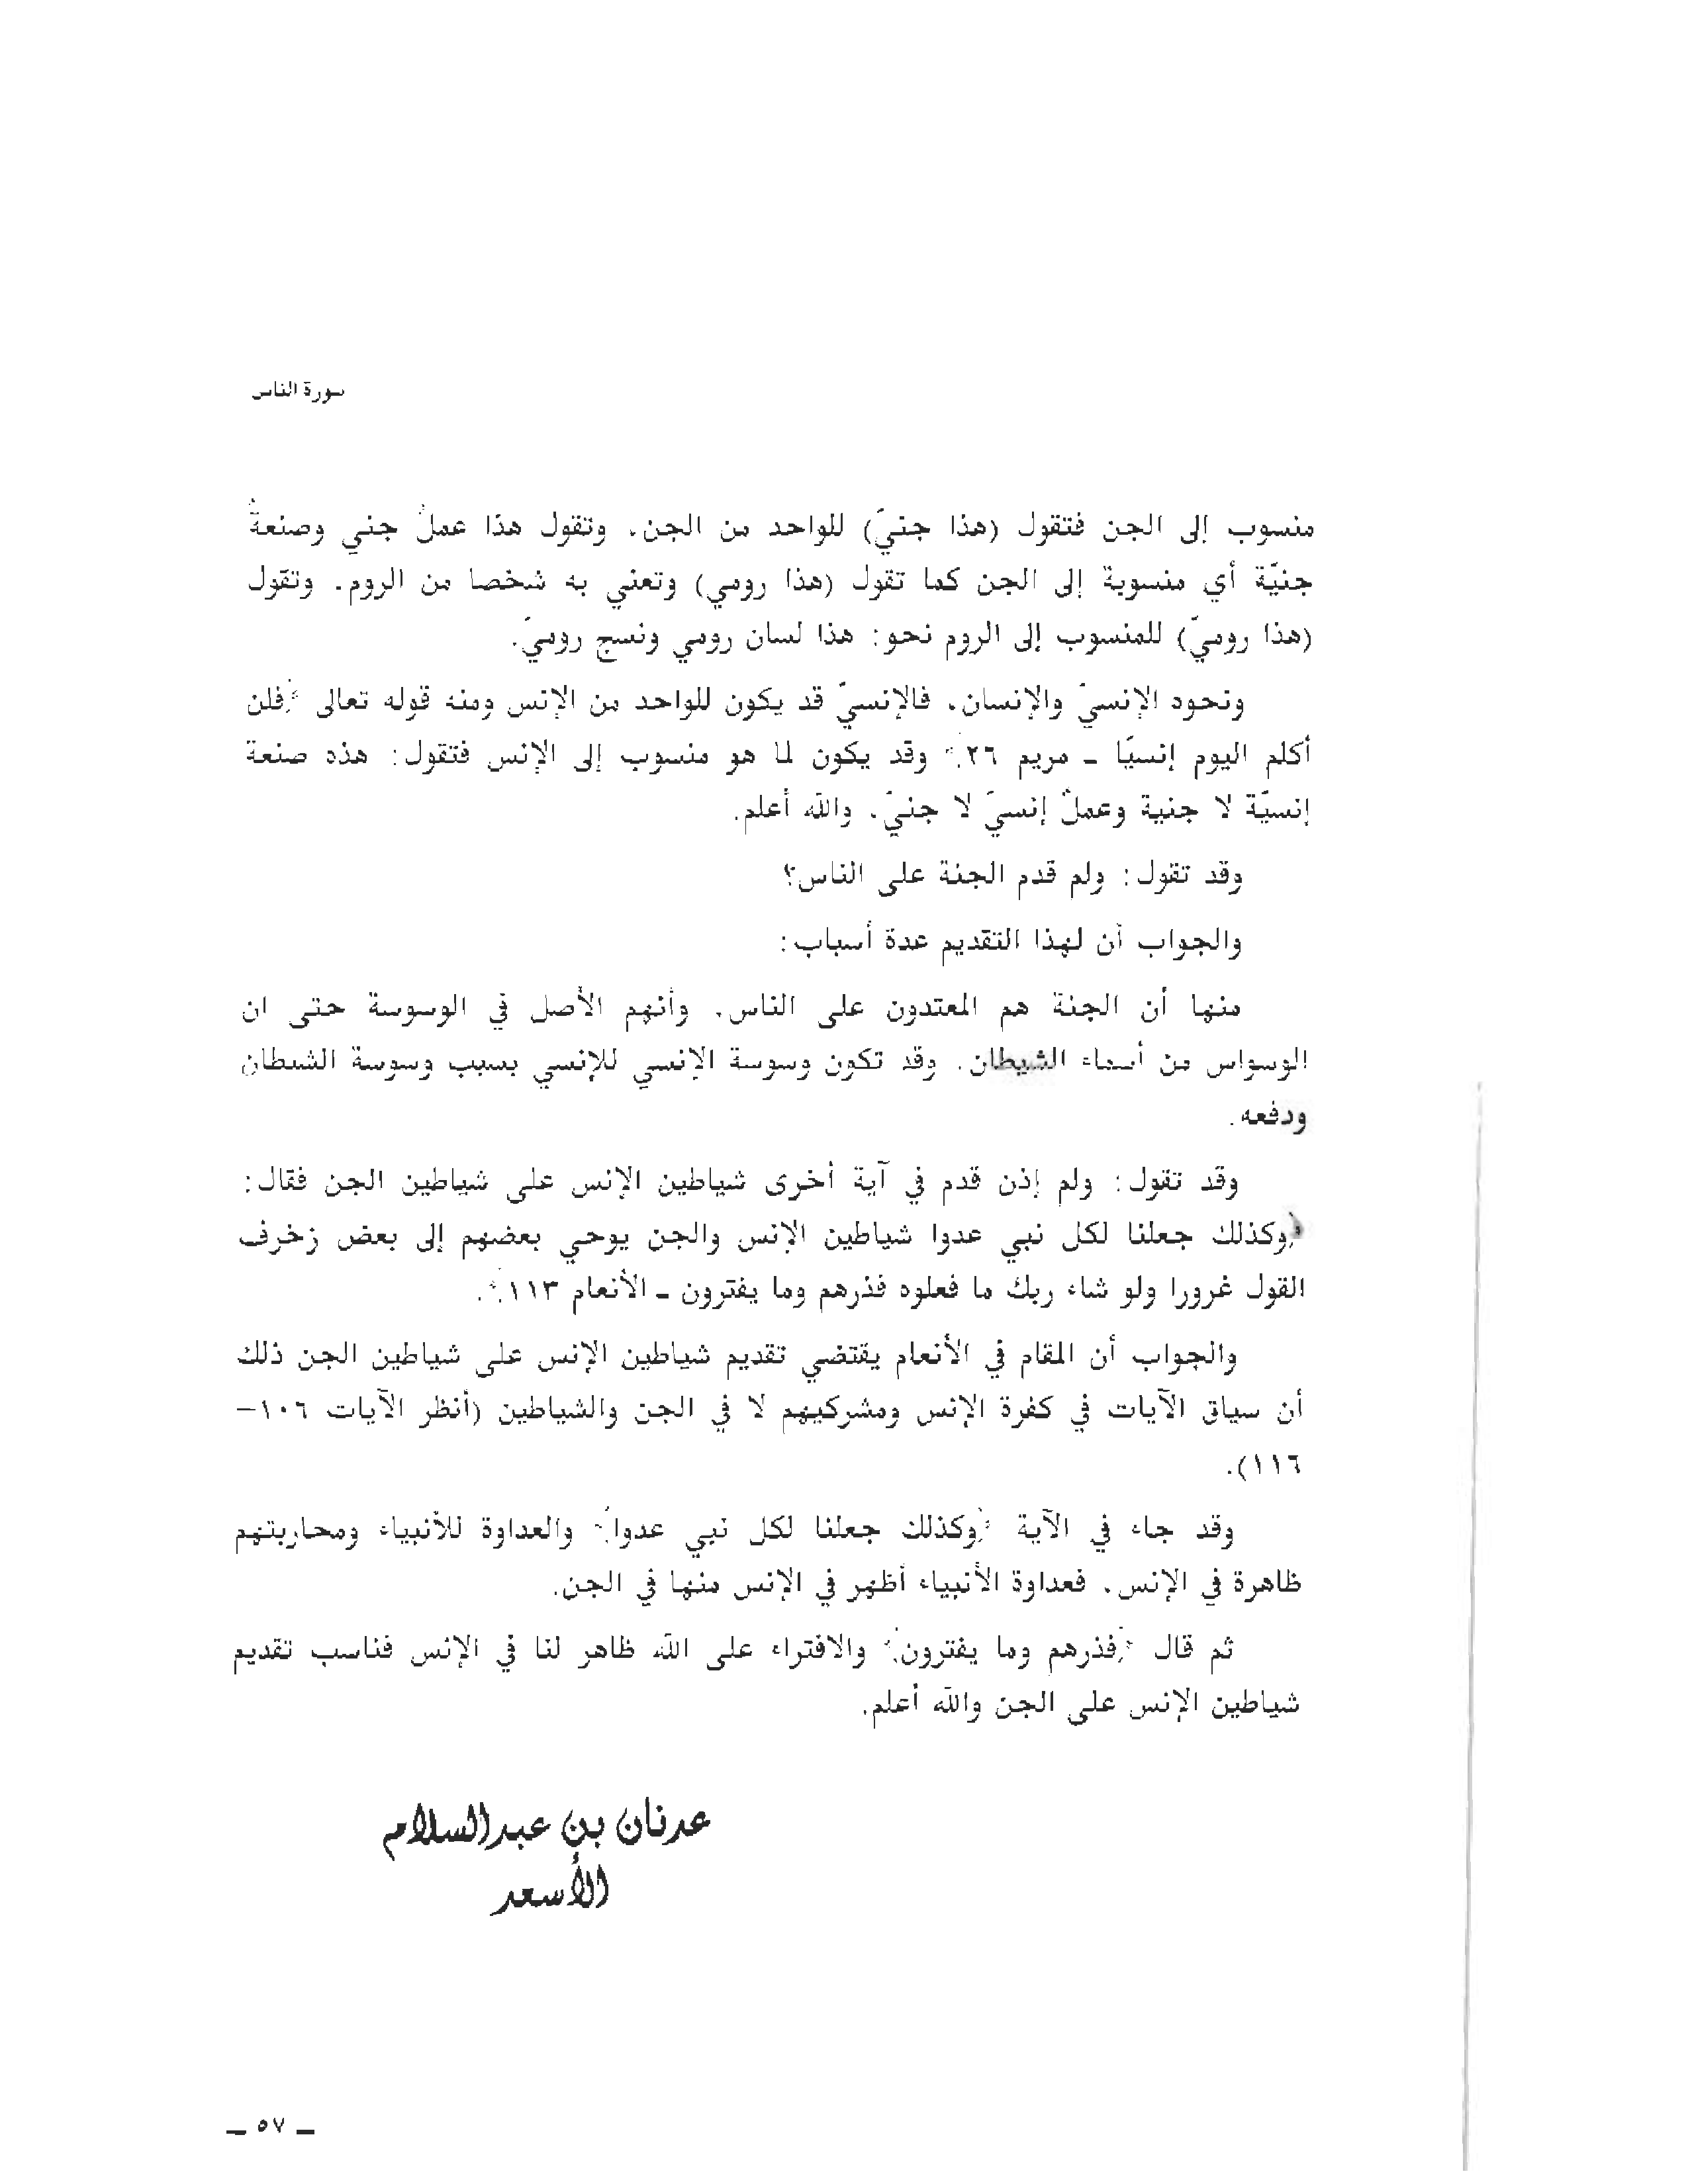 سورة الناس
منسوب إلى الجن فتقول (هذا جنيّ) للواحد من الجن، وتقول هذا عملٌ جني وصنعةٌ
جنيّة أي منسوبة إلى الجن كما تقول (هذا رومي) وتعني به شخصا من الروم. وتقول
(هذا روميّ) للمنسوب إلى الروم نحو: هذا لسان رومي ونسج روميّ.
ونحوه الإنسيّ والإنسان، فالإنسيّ قد يكون للواحد من الإنس ومنه قوله تعالى ﴿فلن
أكلم اليوم إنسيّا ـ مريم ٢٦﴾ وقد يكون لما هو منسوب إلى الإنس فتقول: هذه صنعة
إنسيّة لا جنية وعملٌ إنسيّ لا جنيّ، والله أعلم.
وقد تقول: ولم قدم الجنة على الناس؟
والجواب أن لهذا التقديم عدة أسباب:
منها أن الجنة هم المعتدون على الناس، وأنهم الأصل في الوسوسة حتى ان
الوسواس من أسماء الشيطان. وقد تكون وسوسة الإنسي للإنسي بسبب وسوسة الشيطان
ودفعه.
وقد تقول: ولم إذن قدم في آية أخرى شياطين الإنس على شياطين الجن فقال:
﴿وكذلك جعلنا لكل نبي عدوا شياطين الإنس والجن يوحي بعضهم إلى بعض زخرف
القول غرورا ولو شاء ربك ما فعلوه فذرهم وما يفترون ـ الأنعام ١١٣﴾.
والجواب أن المقام في الأنعام يقتضي تقديم شياطين الإنس على شياطين الجن ذلك
أن سياق الآيات في كفرة الإنس ومشركيهم لا في الجن والشياطين (أنظر الآيات ١٠٦–
١١٦).
وقد جاء في الآية ﴿وكذلك جعلنا لكل نبي عدوا﴾ والعداوة للأنبياء ومحاربتهم
ظاهرة في الإنس، فعداوة الأنبياء أظهر في الإنس منها في الجن.
ثم قال ﴿فذرهم وما يفترون﴾ والافتراء على الله ظاهر لنا في الإنس فناسب تقديم
شياطين الإنس على الجن والله أعلم.
عدنان بن عبدالسلام
الأسعد
ـ ٥٧ ـ